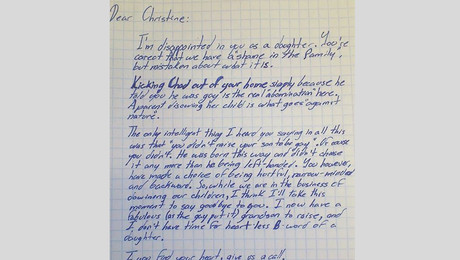 Dear Christine:
I'm disappointed in you as a daughter. You're
corect that we have a "shame in the family",
but mistaken about what it is.
Kicking Chad out of your home simply because he
told you he was gay is the real "abomination" here.
A parent disowning her child is what goes "against
nature".
The only intelligent thing I heard you saying in all this
was that "you didn't raise your son to be gay". Of course
you didn't. He was born this way and didn't choose
it any more than he being left-handed. You however,
have made a choice of being hurtful, narrow-minded
and backward. So, while we are in the business of
disowning our children, I think I'll take this
moment to say goodbye to you. I now have a
fabulous (as the gay put it) grandson to raise, and
I don't have time for heart-less B-word of a
daughter.
find your heart, give us a call.